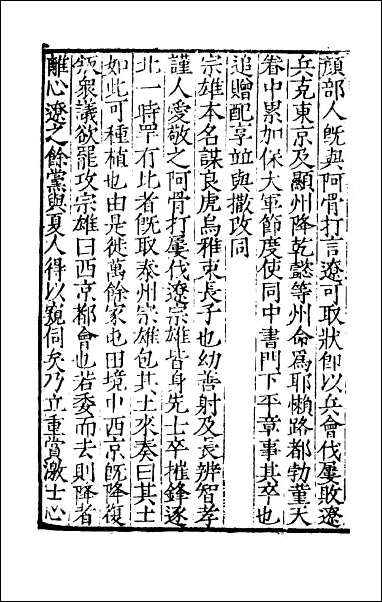 顔部人旣與阿骨打言遼可取狀卽以兵會伐屢敗遼
兵克東京及顯州降乾懿等州命爲耶懶路都勃菫天
眷中累加保大軍節度使同中書門下平章事其卒也
追贈配享並與撒改同
宗雄本名謀良虎烏雅束長子也幼善射及長辨智孝
謹人愛敬之阿骨打屢伐遼宗雄皆身先士卒摧鋒逐
北一時罕有比者旣取泰州宗雄包其土來奏曰其土
如此可種植也由是徙萬餘家屯田境中西京旣降復
叛衆議欲罷攻宗雄曰西京都會也若委而去則降者
離心遼之餘黨與夏人得以窺伺矣乃立重賞激士心